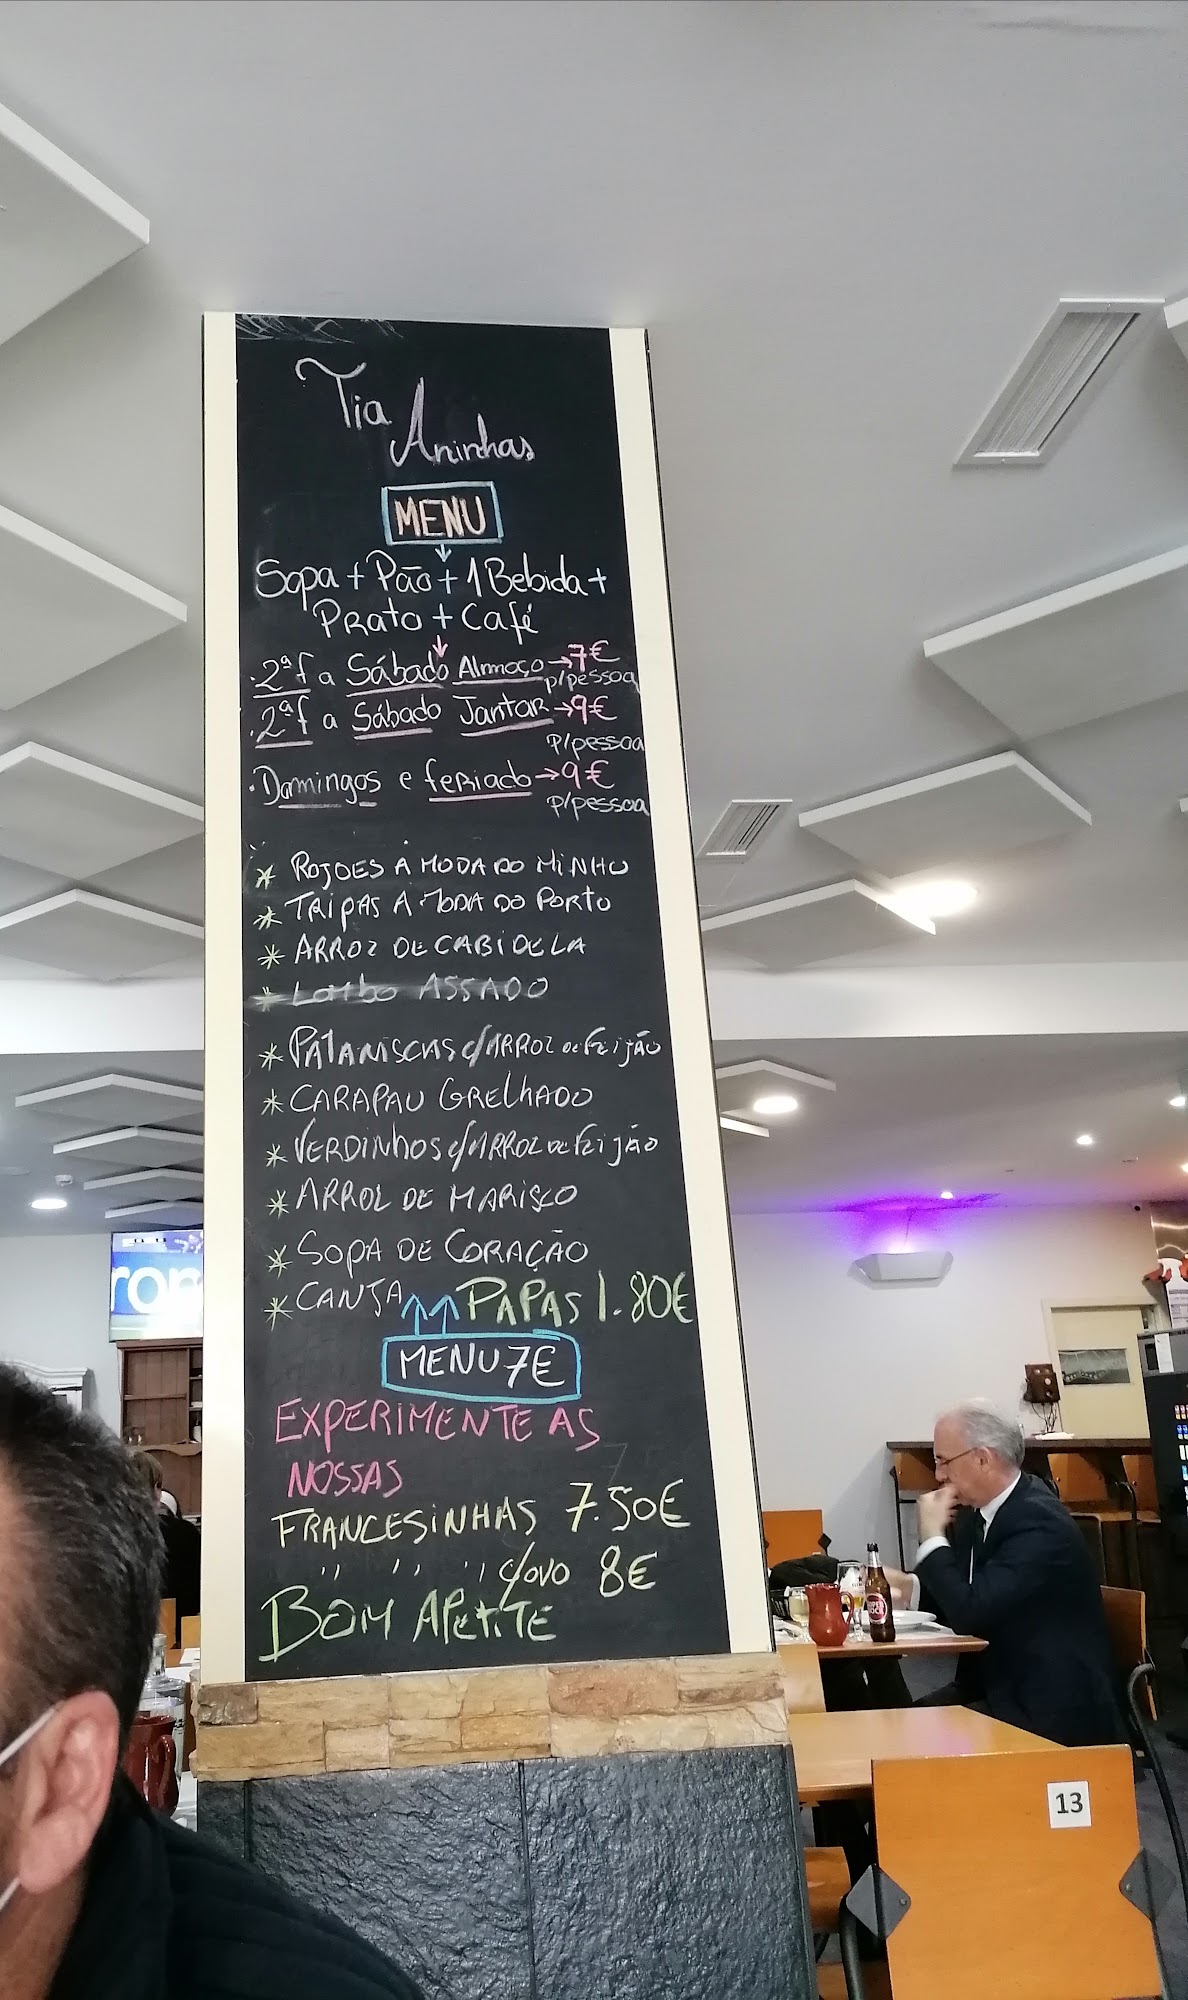 Tia
Aninhas
MENU
Sopa + Pão + 1 Bebida +
Prato + Café
· 2ªf a Sábado Almoço → 7€
p/pessoa
· 2ªf a Sábado Jantar → 9€
p/pessoa
· Domingos e feriado → 9€
p/pessoa
* ROJOES À MODA DO MINHO
* TRIPAS À MODA DO PORTO
* ARROZ DE CABIDELA
* LOMBO ASSADO
* PATANISCAS c/ARROZ DE FEIJÃO
* CARAPAU GRELHADO
* VERDINHOS c/ARROZ DE FEIJÃO
* ARROZ DE MARISCO
* SOPA DE CORAÇÃO
* CANJA ↑↑ PAPAS 1.80€
MENU 7€
EXPERIMENTE AS
NOSSAS
FRANCESINHAS 7.50€
" " " c/ovo 8€
BOM APETITE
ron
13